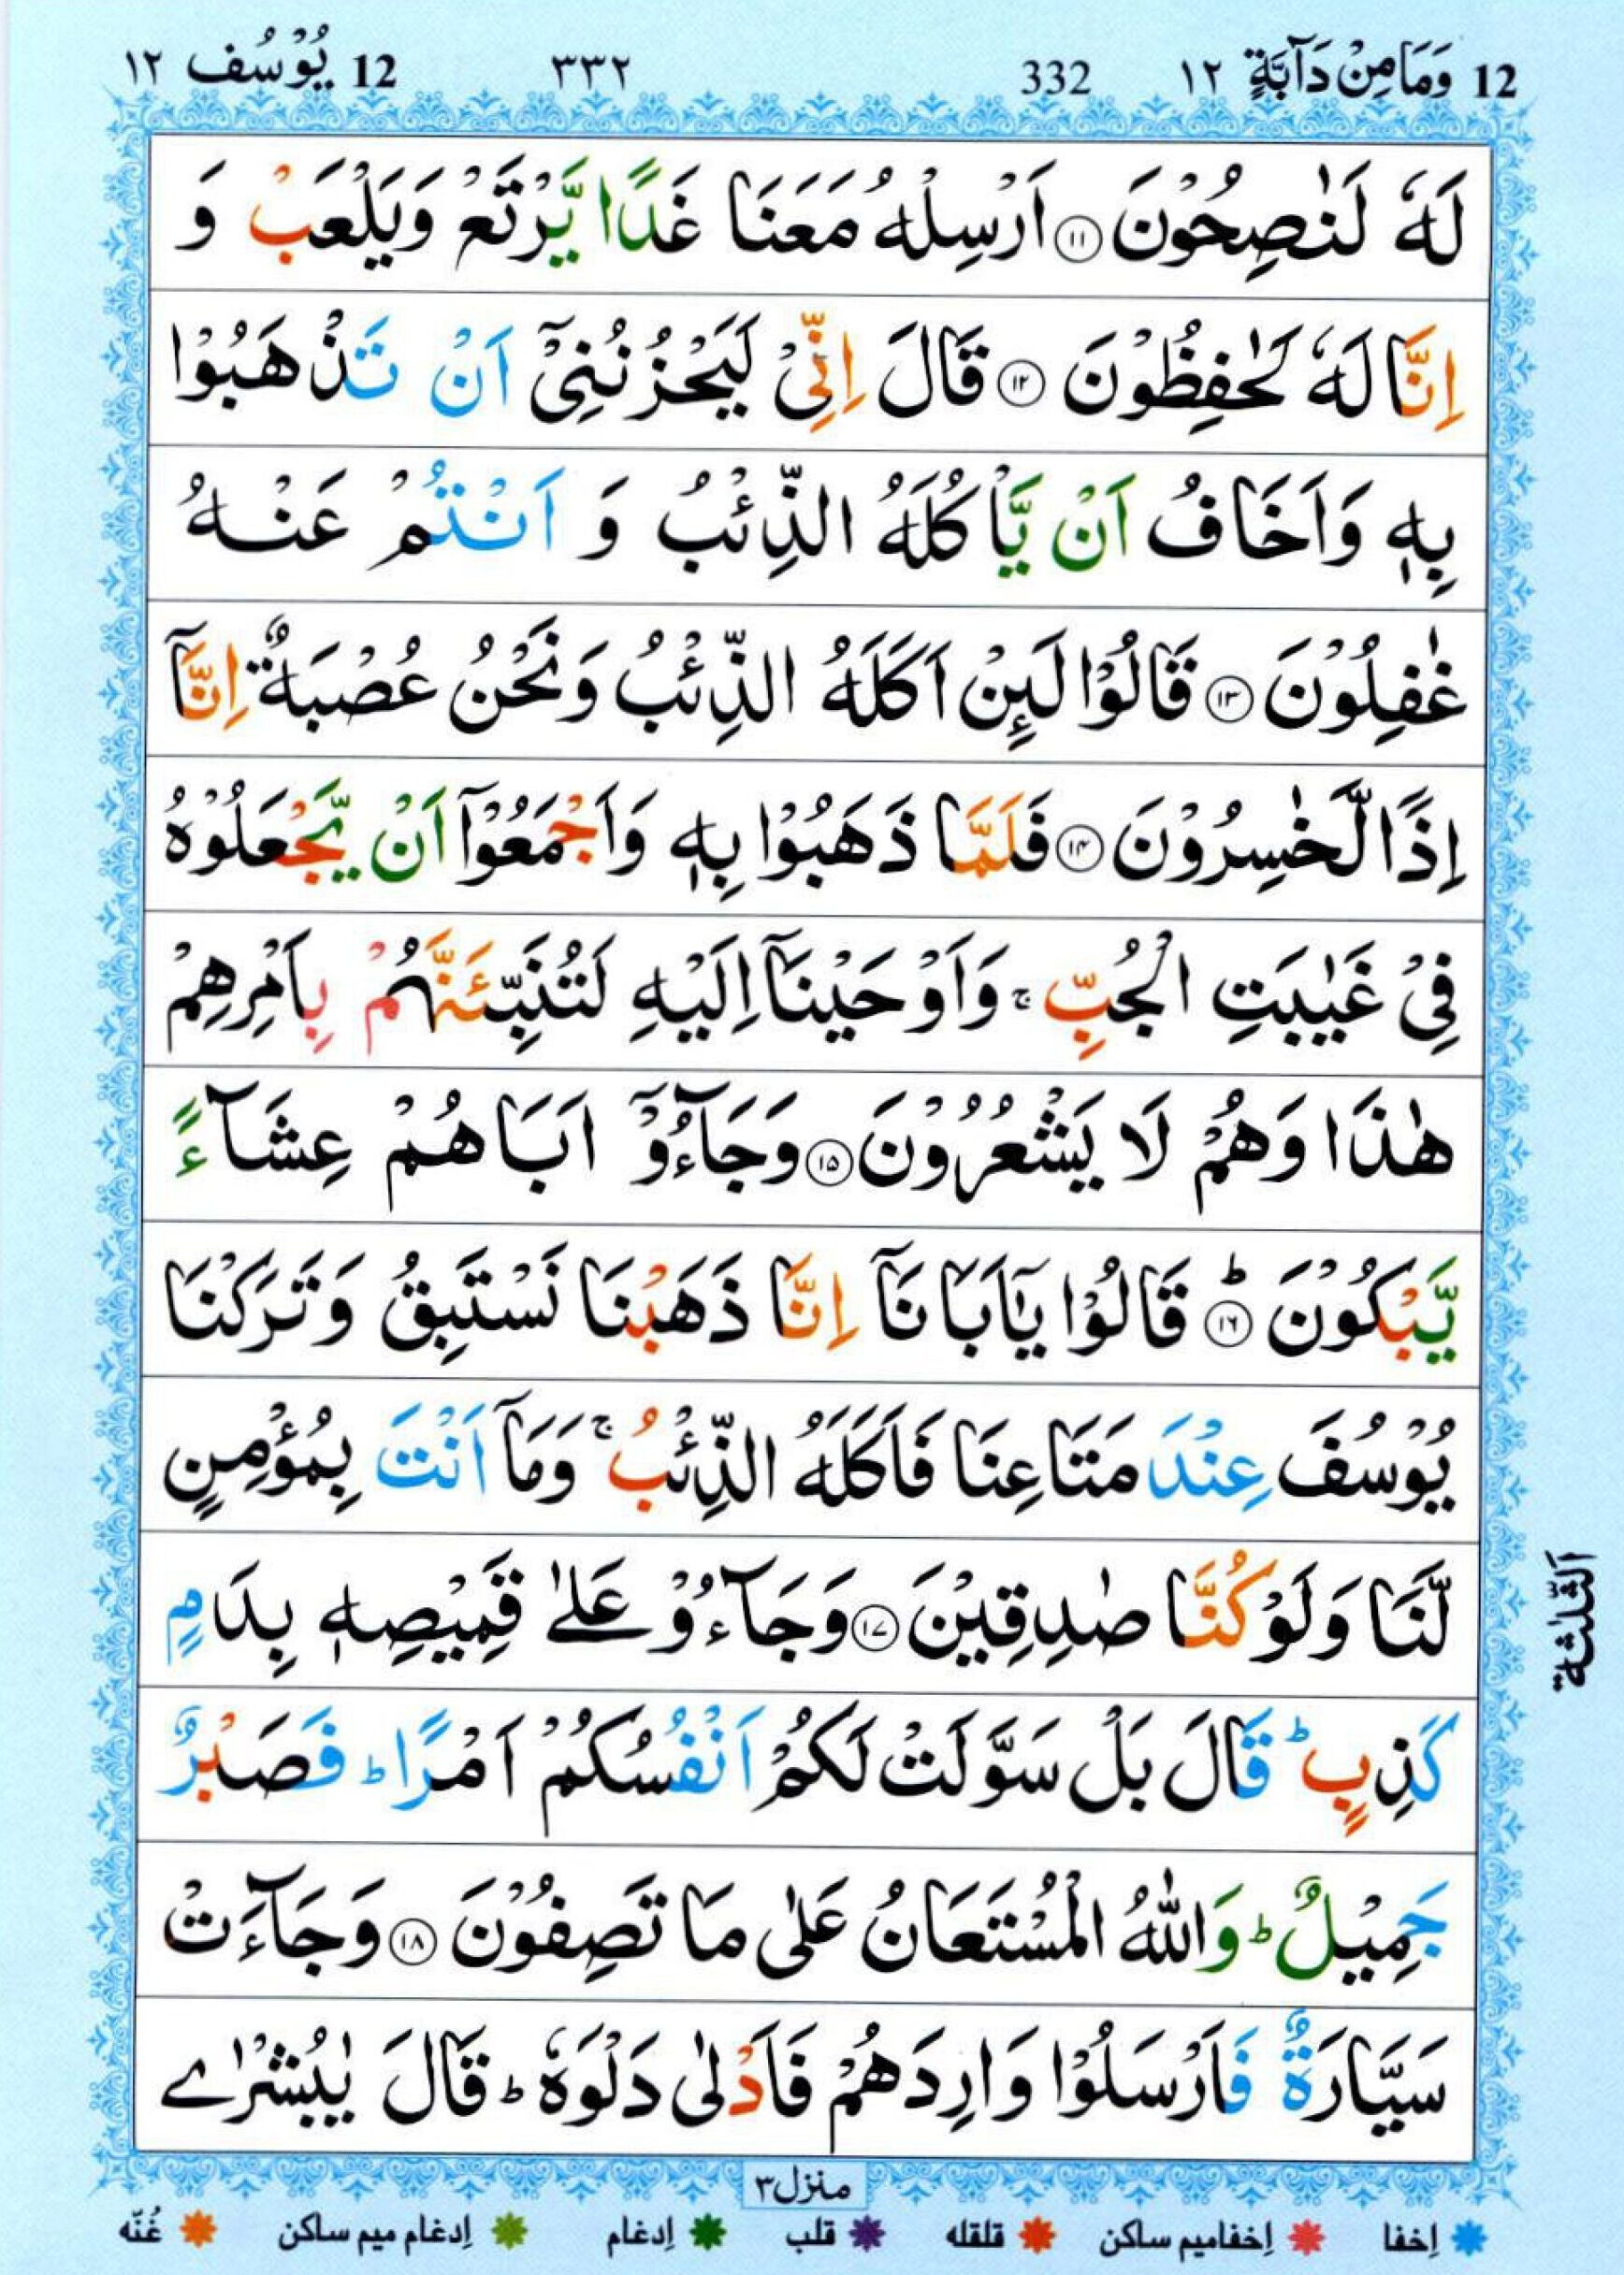 12 وَمَا مِنْ دَآبَّةٍ ١٢ 332 ٣٣٢ 12 يُوْسُف ١٢
لَهٗ لَنٰصِحُوْنَ ١١ اَرْسِلْهُ مَعَنَا غَدًا يَّرْتَعْ وَيَلْعَبْ وَ
اِنَّا لَهٗ لَحٰفِظُوْنَ ١٢ قَالَ اِنِّىْ لَيَحْزُنُنِىْٓ اَنْ تَذْهَبُوْا
بِهٖ وَاَخَافُ اَنْ يَّاْكُلَهُ الذِّئْبُ وَ اَنْتُمْ عَنْهُ
غٰفِلُوْنَ ١٣ قَالُوْا لَئِنْ اَكَلَهُ الذِّئْبُ وَنَحْنُ عُصْبَةٌ اِنَّآ
اِذًا لَّخٰسِرُوْنَ ١٤ فَلَمَّا ذَهَبُوْا بِهٖ وَاَجْمَعُوْٓا اَنْ يَّجْعَلُوْهُ
فِىْ غَيٰبَتِ الْجُبِّ ۚ وَاَوْحَيْنَآ اِلَيْهِ لَتُنَبِّئَنَّهُمْ بِاَمْرِهِمْ
هٰذَا وَهُمْ لَا يَشْعُرُوْنَ ١٥ وَجَآءُوْٓ اَبَاهُمْ عِشَآءً
يَّبْكُوْنَ ؕ ١٦ قَالُوْا يٰٓاَبَانَآ اِنَّا ذَهَبْنَا نَسْتَبِقُ وَتَرَكْنَا
يُوْسُفَ عِنْدَ مَتَاعِنَا فَاَكَلَهُ الذِّئْبُ ۚ وَمَآ اَنْتَ بِمُؤْمِنٍ
لَّنَا وَلَوْ كُنَّا صٰدِقِيْنَ ١٧ وَجَآءُوْ عَلٰى قَمِيْصِهٖ بِدَمٍ
كَذِبٍ ؕ قَالَ بَلْ سَوَّلَتْ لَكُمْ اَنْفُسُكُمْ اَمْرًا ؕ فَصَبْرٌ
جَمِيْلٌ ؕ وَاللّٰهُ الْمُسْتَعَانُ عَلٰى مَا تَصِفُوْنَ ١٨ وَجَآءَتْ
سَيَّارَةٌ فَاَرْسَلُوْا وَارِدَهُمْ فَاَدْلٰى دَلْوَهٗ ؕ قَالَ يٰبُشْرٰى
الثلثة
منزل ٣
اِخفا اِخفامیم ساکن قلقله قلب اِدغام اِدغام میم ساکن غُنّه